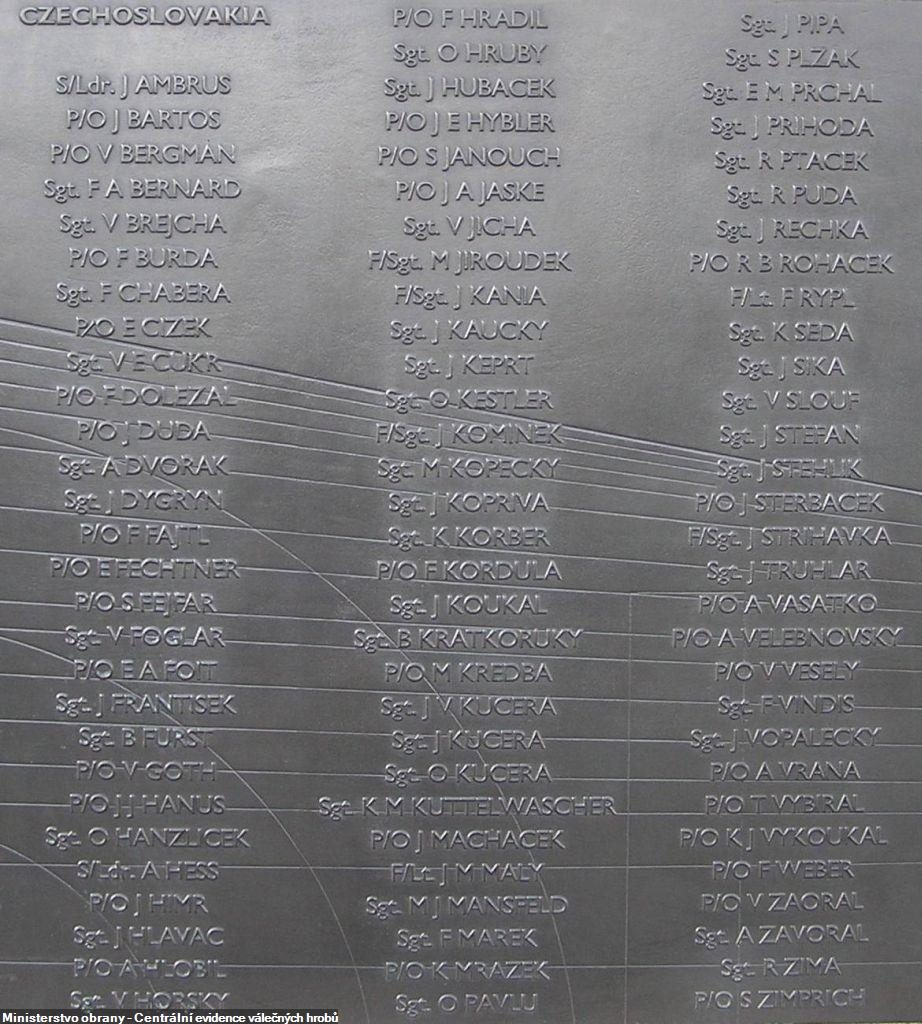 CZECHOSLOVAKIA
S/Ldr. J AMBRUS
P/O J BARTOS
P/O V BERGMAN
Sgt. F A BERNARD
Sgt. V BREJCHA
P/O F BURDA
Sgt. F CHABERA
P/O E CIZEK
Sgt. V E CUKR
P/O F DOLEZAL
P/O J DUDA
Sgt. A DVORAK
Sgt. J DYGRYN
P/O F FAJTL
P/O E FECHTNER
P/O S FEJFAR
Sgt. V FOGLAR
P/O E A FOIT
Sgt. J FRANTISEK
Sgt. B FURST
P/O V GOTH
P/O J J HANUS
Sgt. O HANZLICEK
S/Ldr. A HESS
P/O J HIMR
Sgt. J HLAVAC
P/O A HLOBIL
Sgt. V HORSKY
P/O F HRADIL
Sgt. O HRUBY
Sgt. J HUBACEK
P/O J E HYBLER
P/O S JANOUCH
P/O J A JASKE
Sgt. V JICHA
F/Sgt. M JIROUDEK
F/Sgt. J KANIA
Sgt. J KAUCKY
Sgt. J KEPRT
Sgt. O KESTLER
F/Sgt. J KOMINEK
Sgt. M KOPECKY
Sgt. J KOPRIVA
Sgt. K KORBER
P/O F KORDULA
Sgt. J KOUKAL
Sgt. B KRATKORUKY
P/O M KREDBA
Sgt. J V KUCERA
Sgt. J KUCERA
Sgt. O KUCERA
Sgt. K M KUTTELWASCHER
P/O J MACHACEK
F/Lt. J M MALY
Sgt. M J MANSFELD
Sgt. F MAREK
P/O K MRAZEK
Sgt. O PAVLU
Sgt. J PIPA
Sgt. S PLZAK
Sgt. E M PRCHAL
Sgt. J PRIHODA
Sgt. R PTACEK
Sgt. R PUDA
Sgt. J RECHKA
P/O R B ROHACEK
F/Lt. F RYPL
Sgt. K SEDA
Sgt. J SIKA
Sgt. V SLOUF
Sgt. J STEFAN
Sgt. J STEHLIK
P/O J STERBACEK
F/Sgt. J STRIHAVKA
Sgt. J TRUHLAR
P/O A VASATKO
P/O A VELEBNOVSKY
P/O V VESELY
Sgt. F VINDIS
Sgt. J VOPALECKY
P/O A VRANA
P/O T VYBIRAL
P/O K J VYKOUKAL
P/O F WEBER
P/O V ZAORAL
Sgt. A ZAVORAL
Sgt. R ZIMA
P/O S ZIMPRICH
Ministerstvo obrany - Centrální evidence válečných hrobů